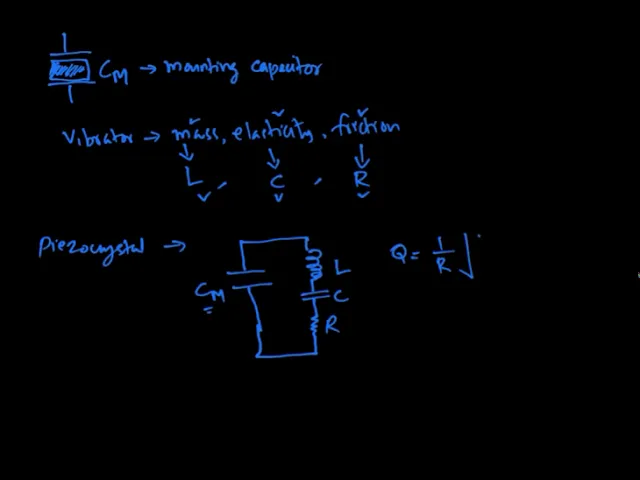 CM → mounting capacitor
Vibrator → mass, elasticity, friction
L, C, R
Piezocrystal →
CM
L
C
R
Q = 1/R √